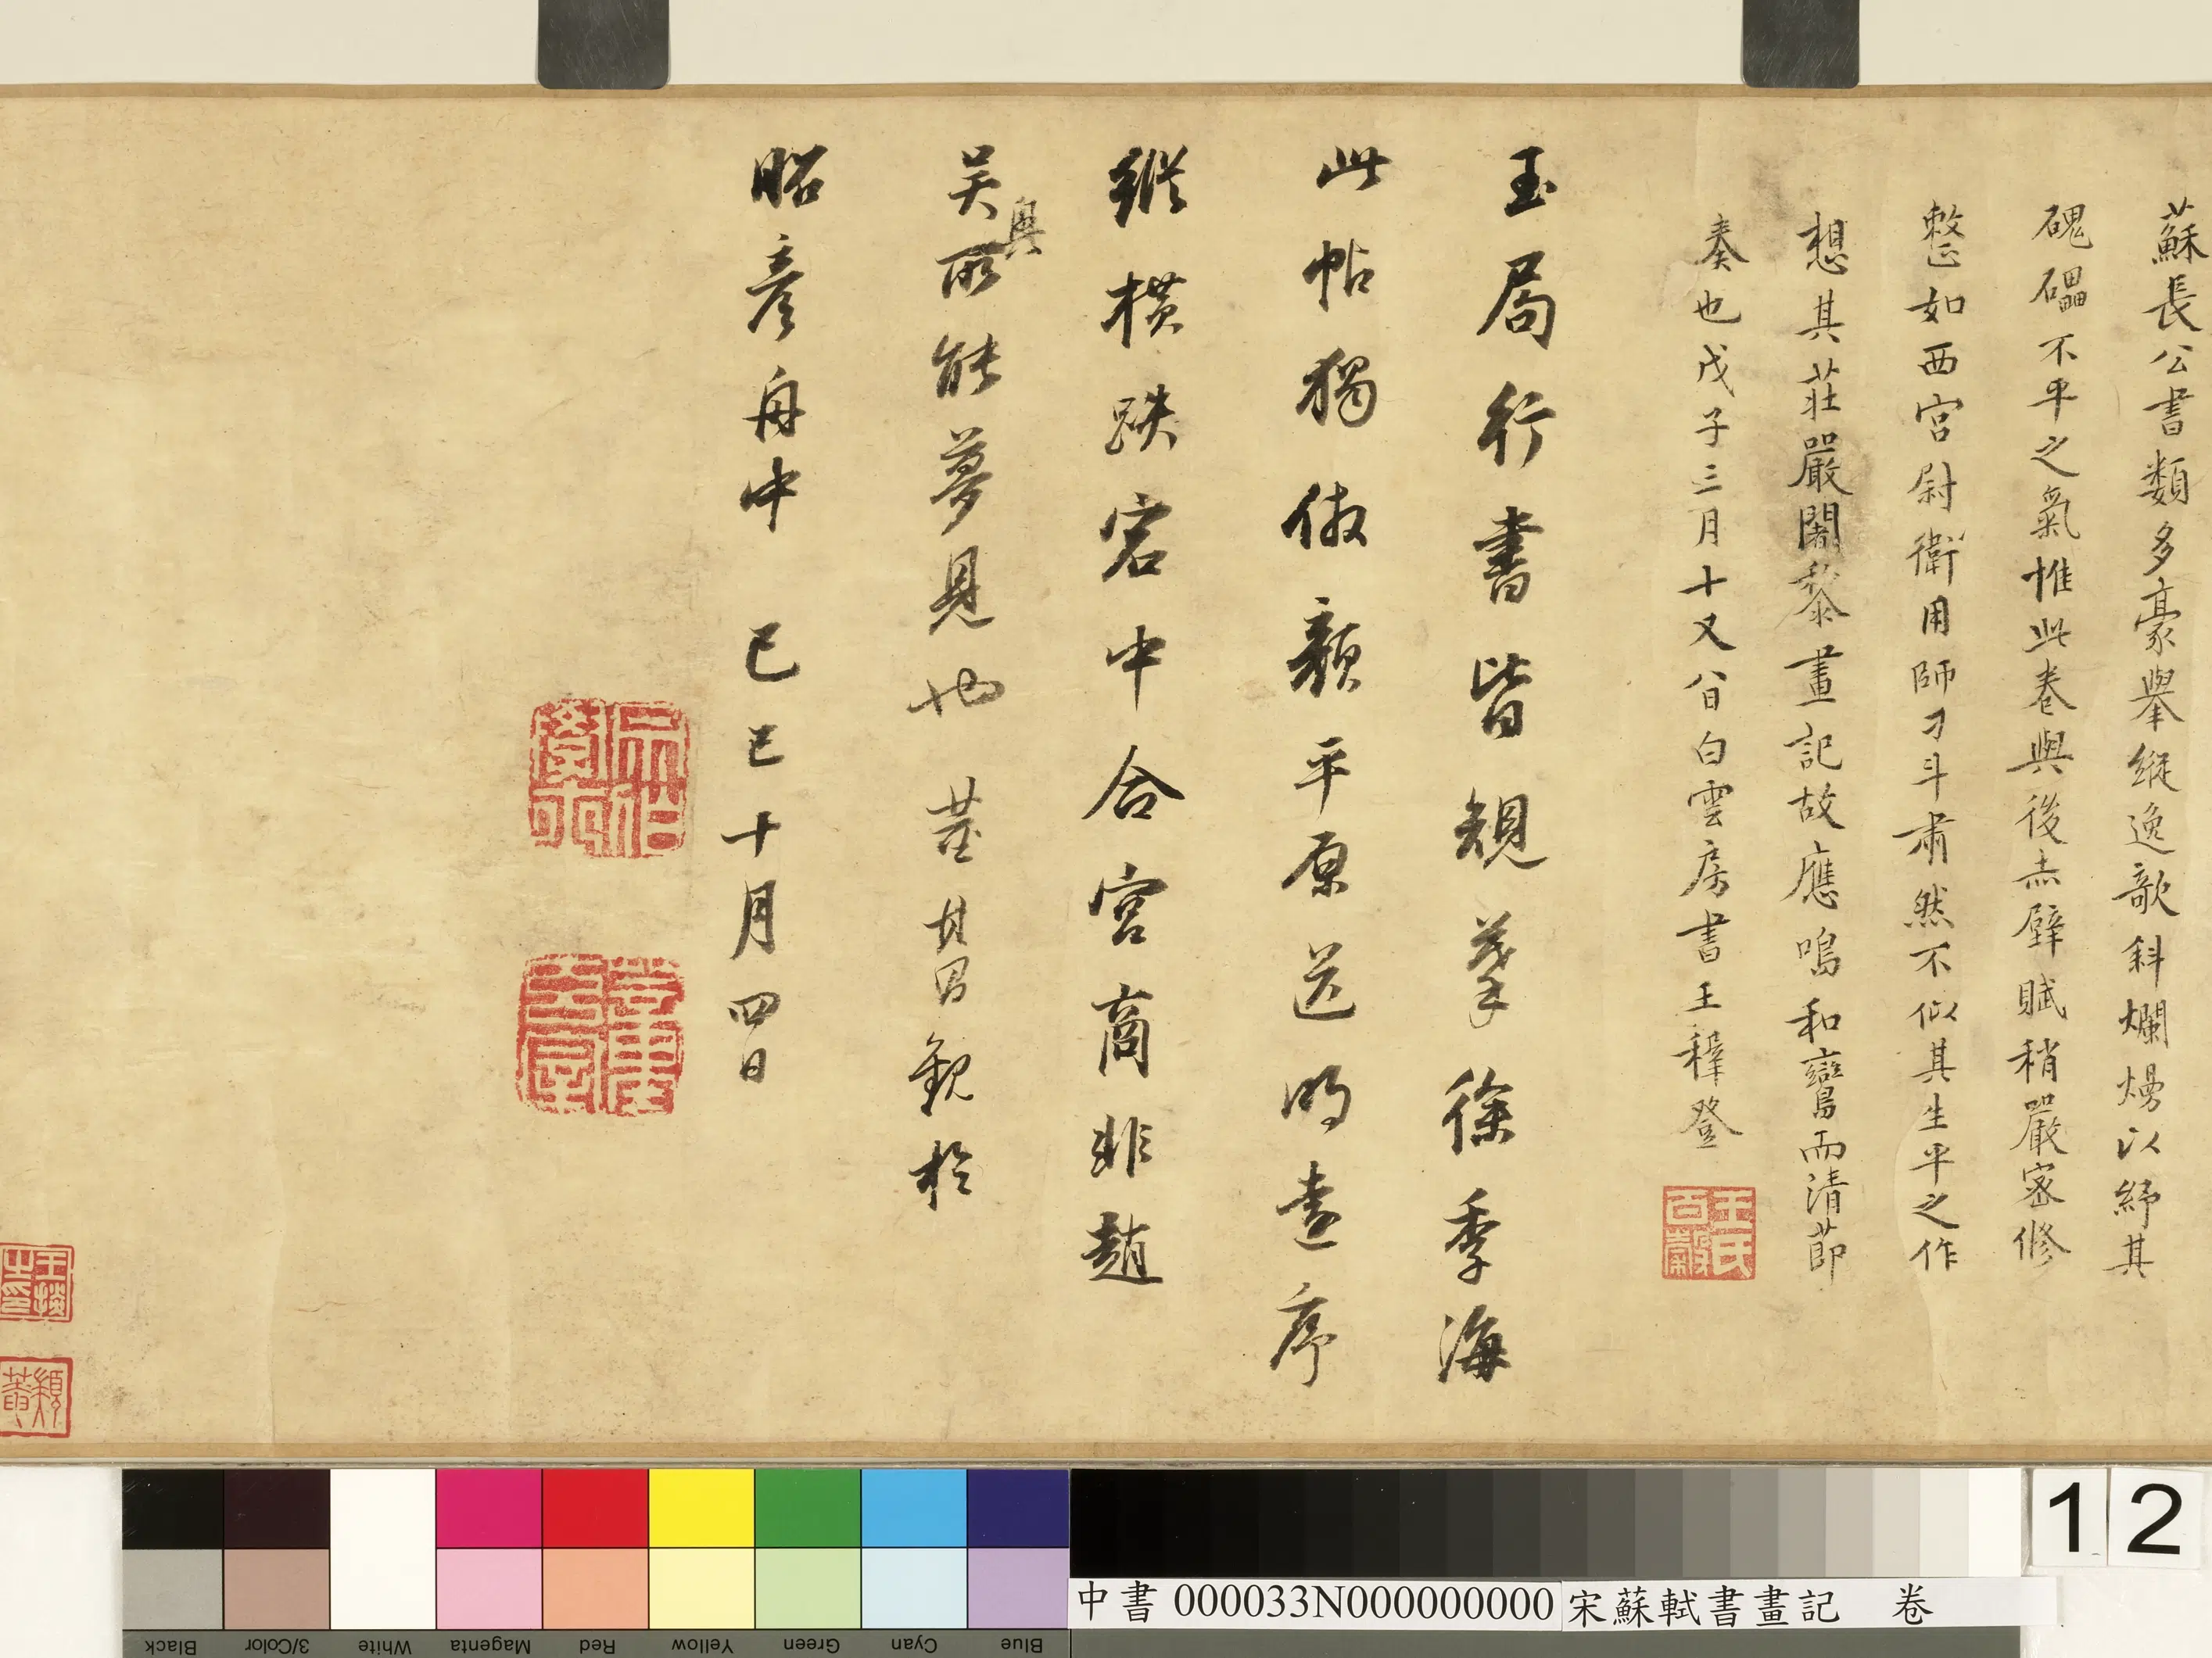 蘇長公書類多豪舉縱逸欹斜爛熳以紓其
磈礧不平之氣惟此卷與後赤壁賦稍嚴密修
整如西宮尉衛用師刁斗肅然不似其生平之作
想其莊嚴闍黎畫記故應鳴和鸞而清節
奏也戊子三月十又八日白雲房書王穉登
王氏百穀
玉局行書皆規摹徐季海
此帖獨倣顏平原送明遠序
縱橫跌宕中合宮商非趙
吳興所能夢見也 董其昌觀於
昭彥舟中 己巳十月四日
王掞之印
顓菴
Black
3/Color
White
Magenta
Red
Yellow
Green
Cyan
Blue
12
中書 000033N000000000 宋蘇軾書畫記 卷